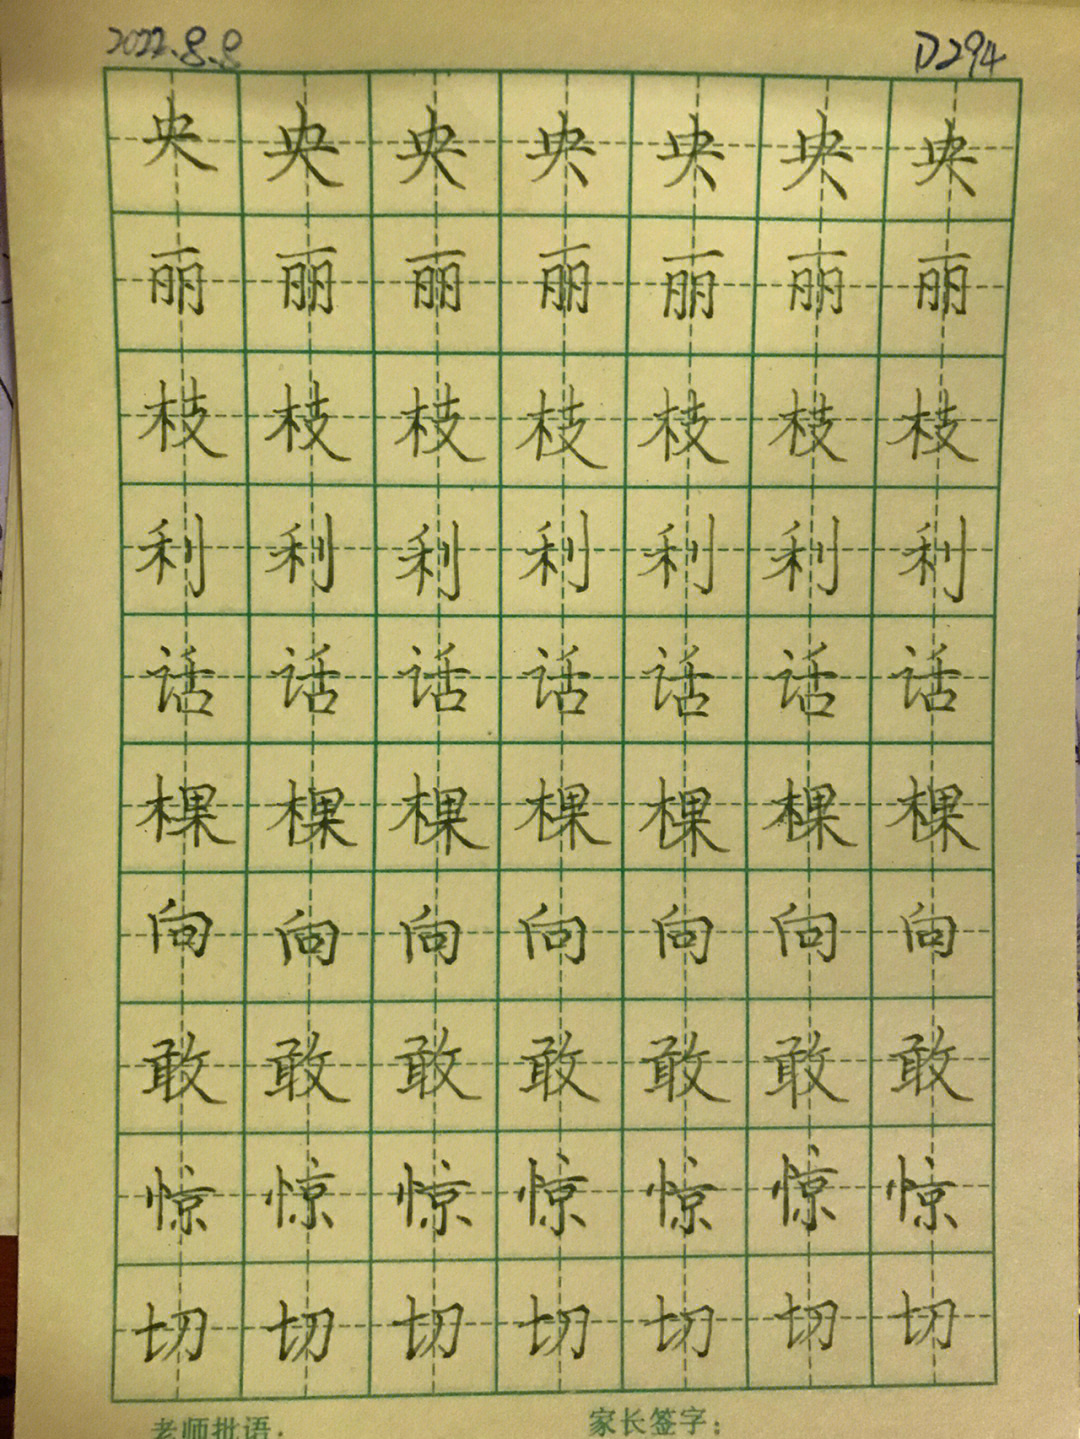 2022.8.8 D294
央央央央央央央
丽丽丽丽丽丽丽
枝枝枝枝枝枝枝
利利利利利利利
话话话话话话话
棵棵棵棵棵棵棵
向向向向向向向
敢敢敢敢敢敢敢
惊惊惊惊惊惊惊
切切切切切切切
老师批语: 家长签字: